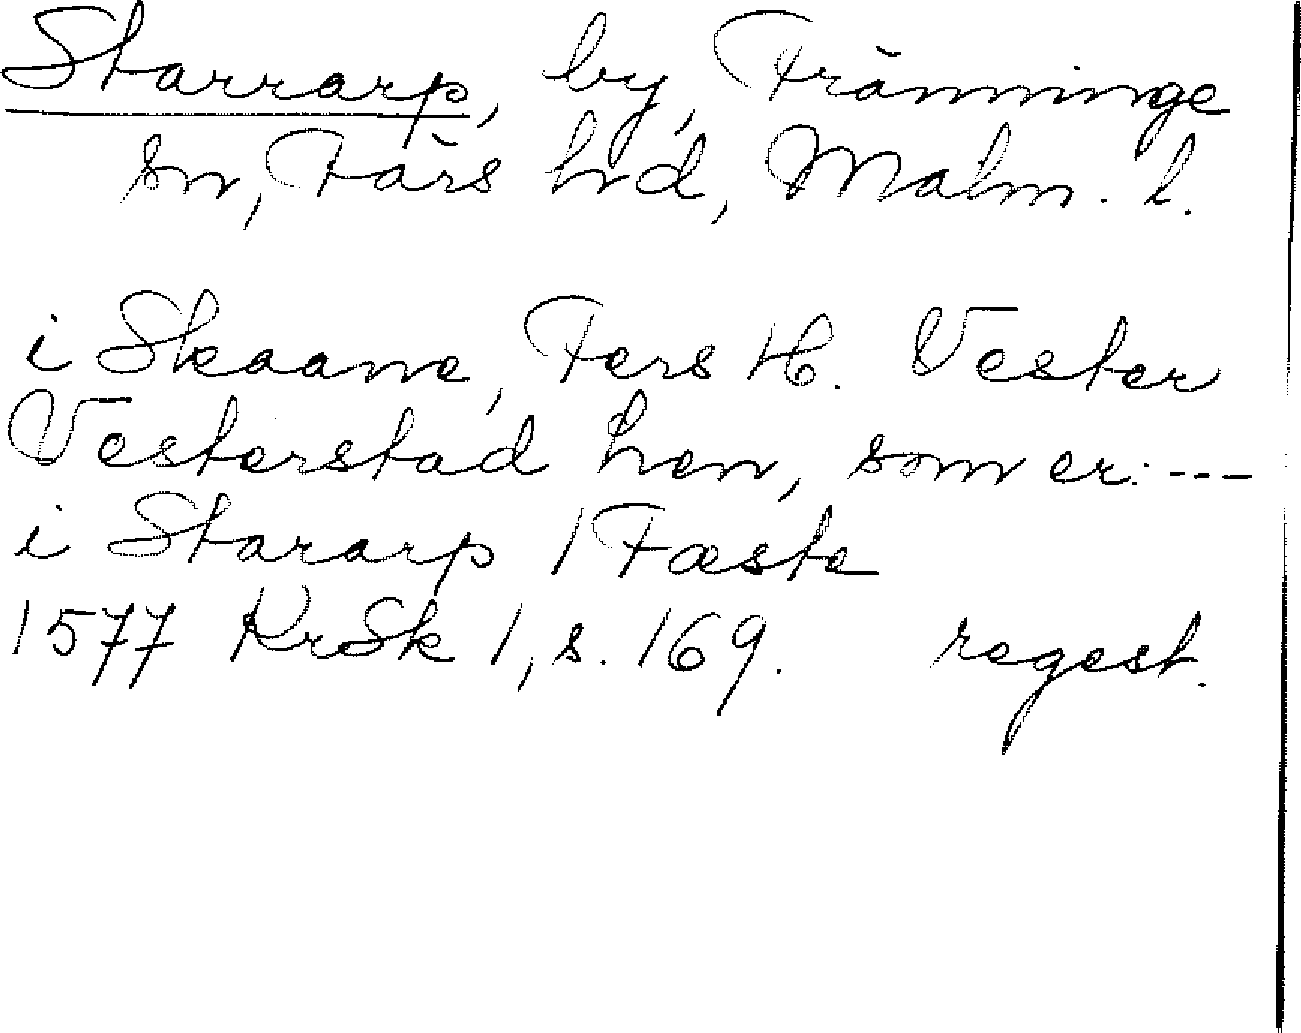 Starrarp, by, Fränninge
sn, Färs hd, Malm. l.
i Skaane, Fers H. Vester
Vesterstad Len, som er: ---
i Stararp 1 Fæste
1577 KrSk 1, s. 169. regest.